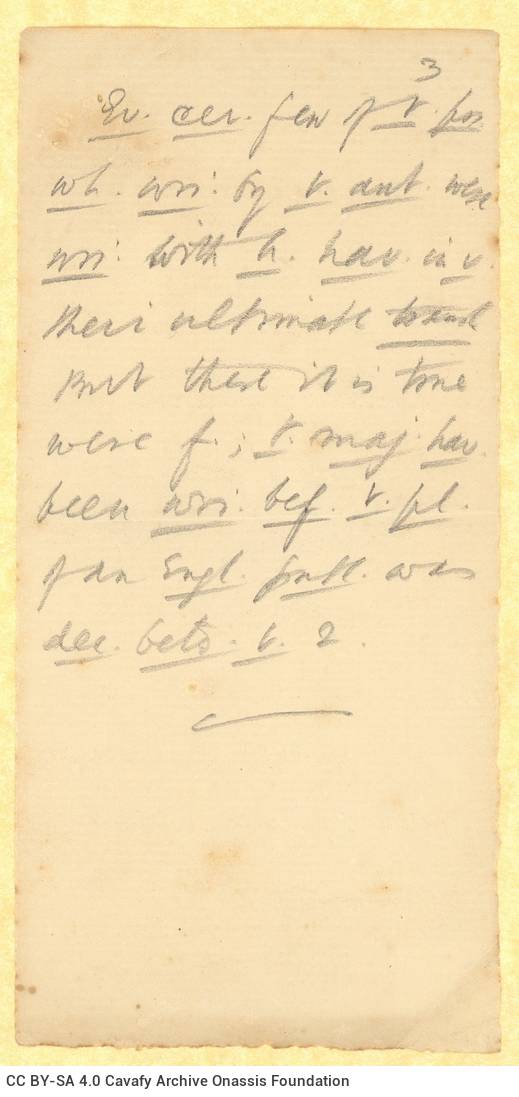 3
Ev. cer. few of t. po
wh. wri. by t. aut. were
wri. with h. hav. in v.
their ultimate
But these it is true
were f.; t. maj. hav.
been wri. bef. t. pl.
of an Engl. publ. was
dec. betw. t. 2.
CC BY-SA 4.0 Cavafy Archive Onassis Foundation